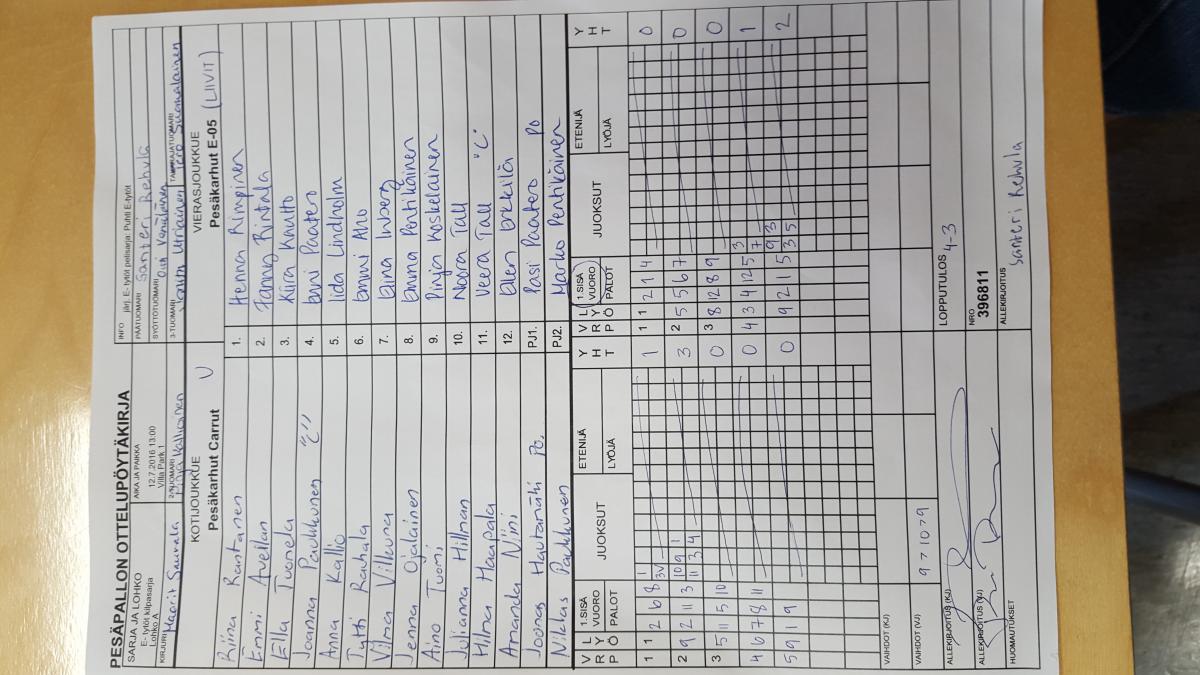 PESÄPALLON OTTELUPÖYTÄKIRJA
SARJA JA LOHKO
E- tytöt kilpasarja
Lohko A
AIKA JA PAIKKA
12.7.2016 13:00
Villa Park 1
INFO jlirj. E- tytöt pelisarja: Puhti E-tytöt
PÄÄTUOMARI Santeri Rehula
SYÖTTÖTUOMARI Outi Venäläinen
KIRJURI Maarit Saurala
2-TUOMARI
3-TUOMARI
TAKARAJATUOMARI Tero Suomalainen
KOTIJOUKKUE
Pesäkarhut Carrut U
VIERASJOUKKUE
Pesäkarhut E-05 (LIIVIT)
Riina Rantanen 1. Henna Rimpinen
Emmi Avellan 2. Fanny Rintala
Ella Tuomela 3. Kiira Knutto
Joanna Paukkunen "C" 4. Enni Paatero
Anna Kallio 5. Iida Lindholm
Tytti Rauhala 6. Emmi Aho
Vilma Vilkuna 7. Elina Inberg
Jenna Ojalainen 8. Emma Pentikäinen
Aino Tuomi 9. Pinja Koskelainen
Julianna Hillman 10. Noora Tall
Hilma Haapala 11. Veera Tall "C"
Amanda Nini 12. Ellen
Joonas Hautamäki PO. PJ1. Pasi Paatero PO
Niklas Paukkunen PJ2. Marko Pentikäinen
V R P L Y Ö 1.SISÄ VUORO PALOT JUOKSUT ETENIJÄ LYÖJÄ Y H T V R P L Y Ö 1.SISÄ VUORO PALOT JUOKSUT ETENIJÄ LYÖJÄ Y H T
1 1 2 6 8 1 3V 1 1 1 2 1 4 0
2 9 2 11 3 10 9 1 11 3 4 3 2 5 5 6 7 0
3 5 11 5 10 0 3 8 12 8 9 0
4 6 7 8 11 0 4 3 4 12 5 3 7 1
5 9 1 9 0 9 2 1 5 9 3 3 5 2
VAIHDOT (KJ)
VAIHDOT (VJ) 9 7 10 7 9
ALLEKIRJOITUS (KJ)
LOPPUTULOS 4-3
ALLEKIRJOITUS (VJ)
NRO
396811
HUOMAUTUKSET
ALLEKIRJOITUS
Santeri Rehula